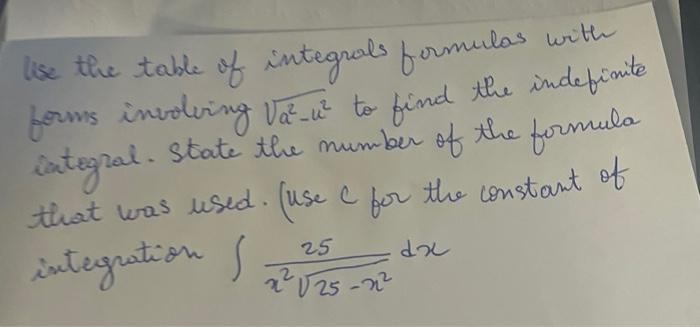 Use the table of integrals formulas with
forms involving √a²-u² to find the indefinite
integral. State the number of the formula
that was used. (use C for the constant of
integration ∫ 25/(x²√25-x²) dx